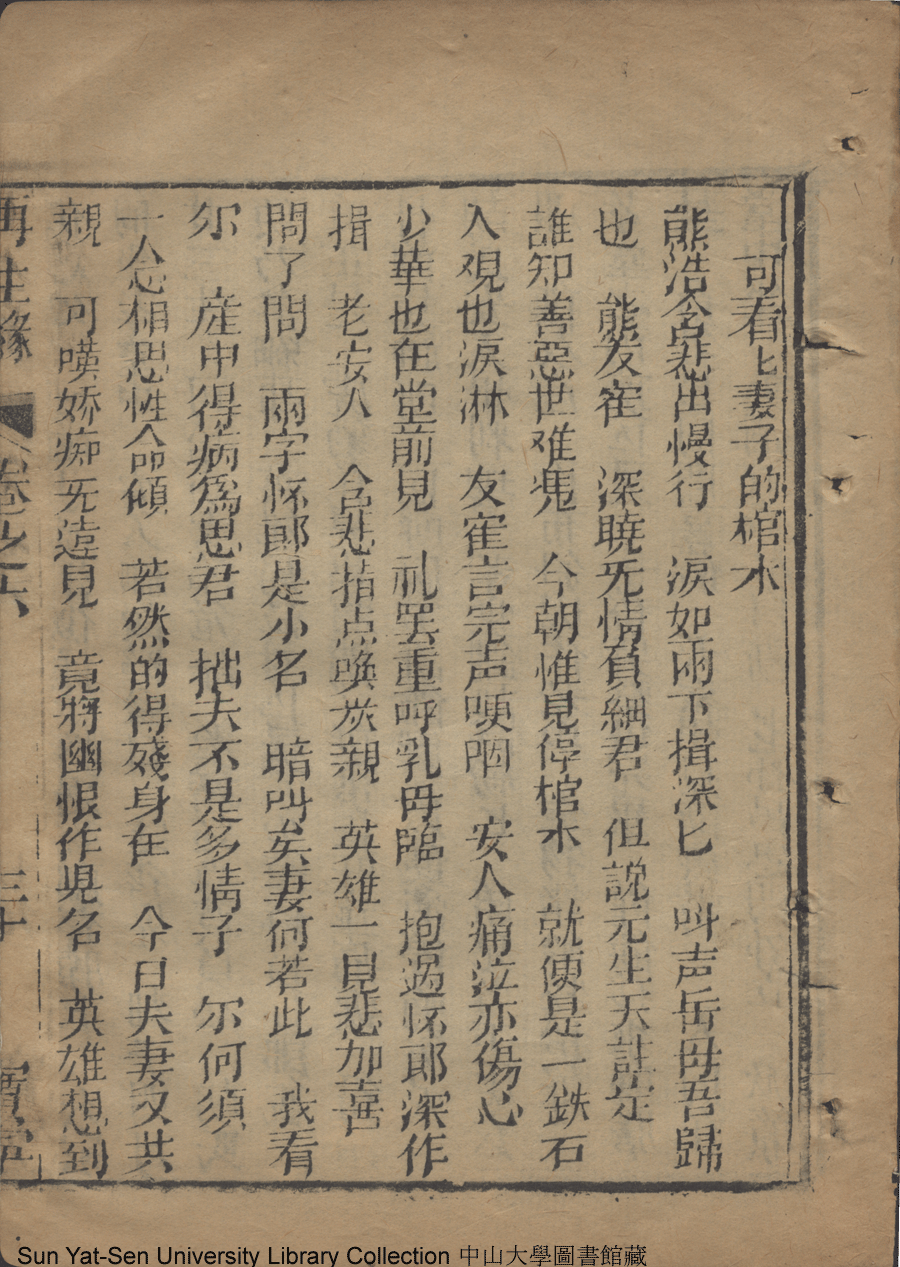 可看匕妻子的棺木
熊浩含悲出慢行　淚如雨下揖深匕　叫声岳母吾歸
也　熊友寉　深曉无情負細君　但說元生天註定
誰知善惡世难凭　今朝惟見停棺木　就便是一鉄石
人覌也淚淋　友寉言完声哽咽　安人痛泣亦傷心
少華也在堂前見　礼罢重呼乳母臨　抱過怀郎深作
揖　老安人　含悲指点喚灰親　英雄一見悲加喜
問了問　兩字怀郎是小名　暗叫矣妻何若此　我看
尔　産中得病為思君　拙夫不是多情子　尔何須
一念相思性命傾　若然的得殘身在　今日夫妻又共
親　可嘆娇痴无遠見　竟將幽恨作児名　英雄想到
再生緣　卷之六　三十　寶寧
Sun Yat-Sen University Library Collection 中山大學圖書館藏